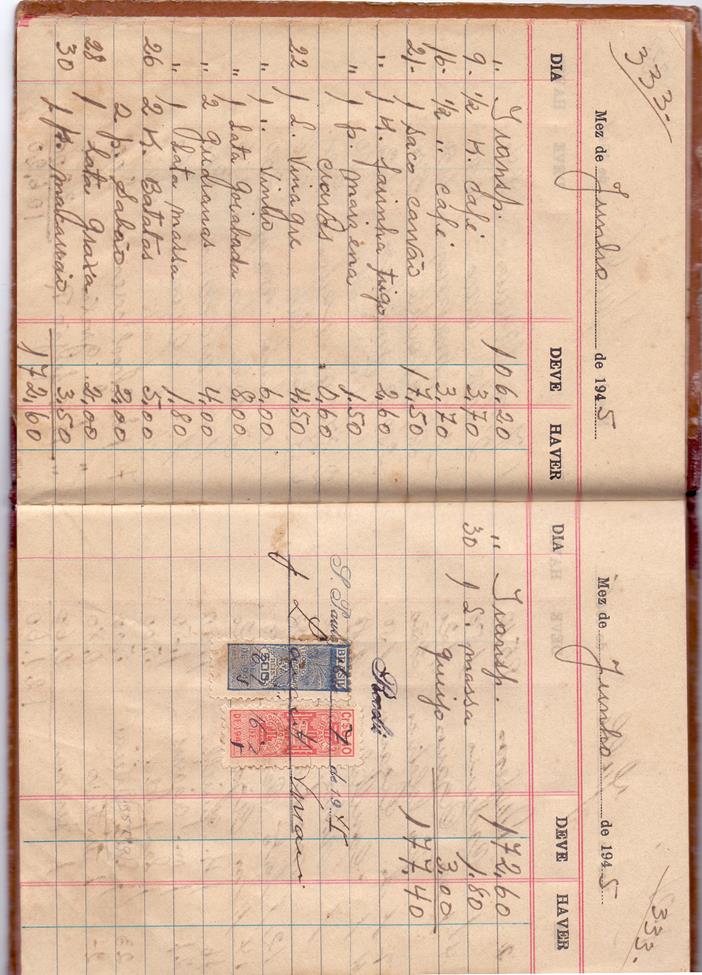 333.
Mez de Junho de 1945
DIA DEVE HAVER
" Transp. 106,20
9. 1/2 K. café 3,70
16. 1/2 " café 3,70
21. 1 saco carvão 17,50
" 1 K. farinha trigo 2,60
" 1 p. maizena 1,50
cravos 0,60
22 1 L. Vinagre 4,50
" 1 " Vinho 6,00
" 1 lata goiabada 8,00
" 2 Guaranas 4,00
" 1 lata massa 1,80
26 2 K. Batatas 5,00
2 p. Sabão 2,00
28 1 Lata Graxa 2,00
30 1 K. macarrão 3,50
172,60
333.
Mez de Junho de 1945
DIA DEVE HAVER
" Transp. 172,60
30 1 L. massa 1,80
queijo 3,00
177,40
S. Paulo de 19
BRASIL